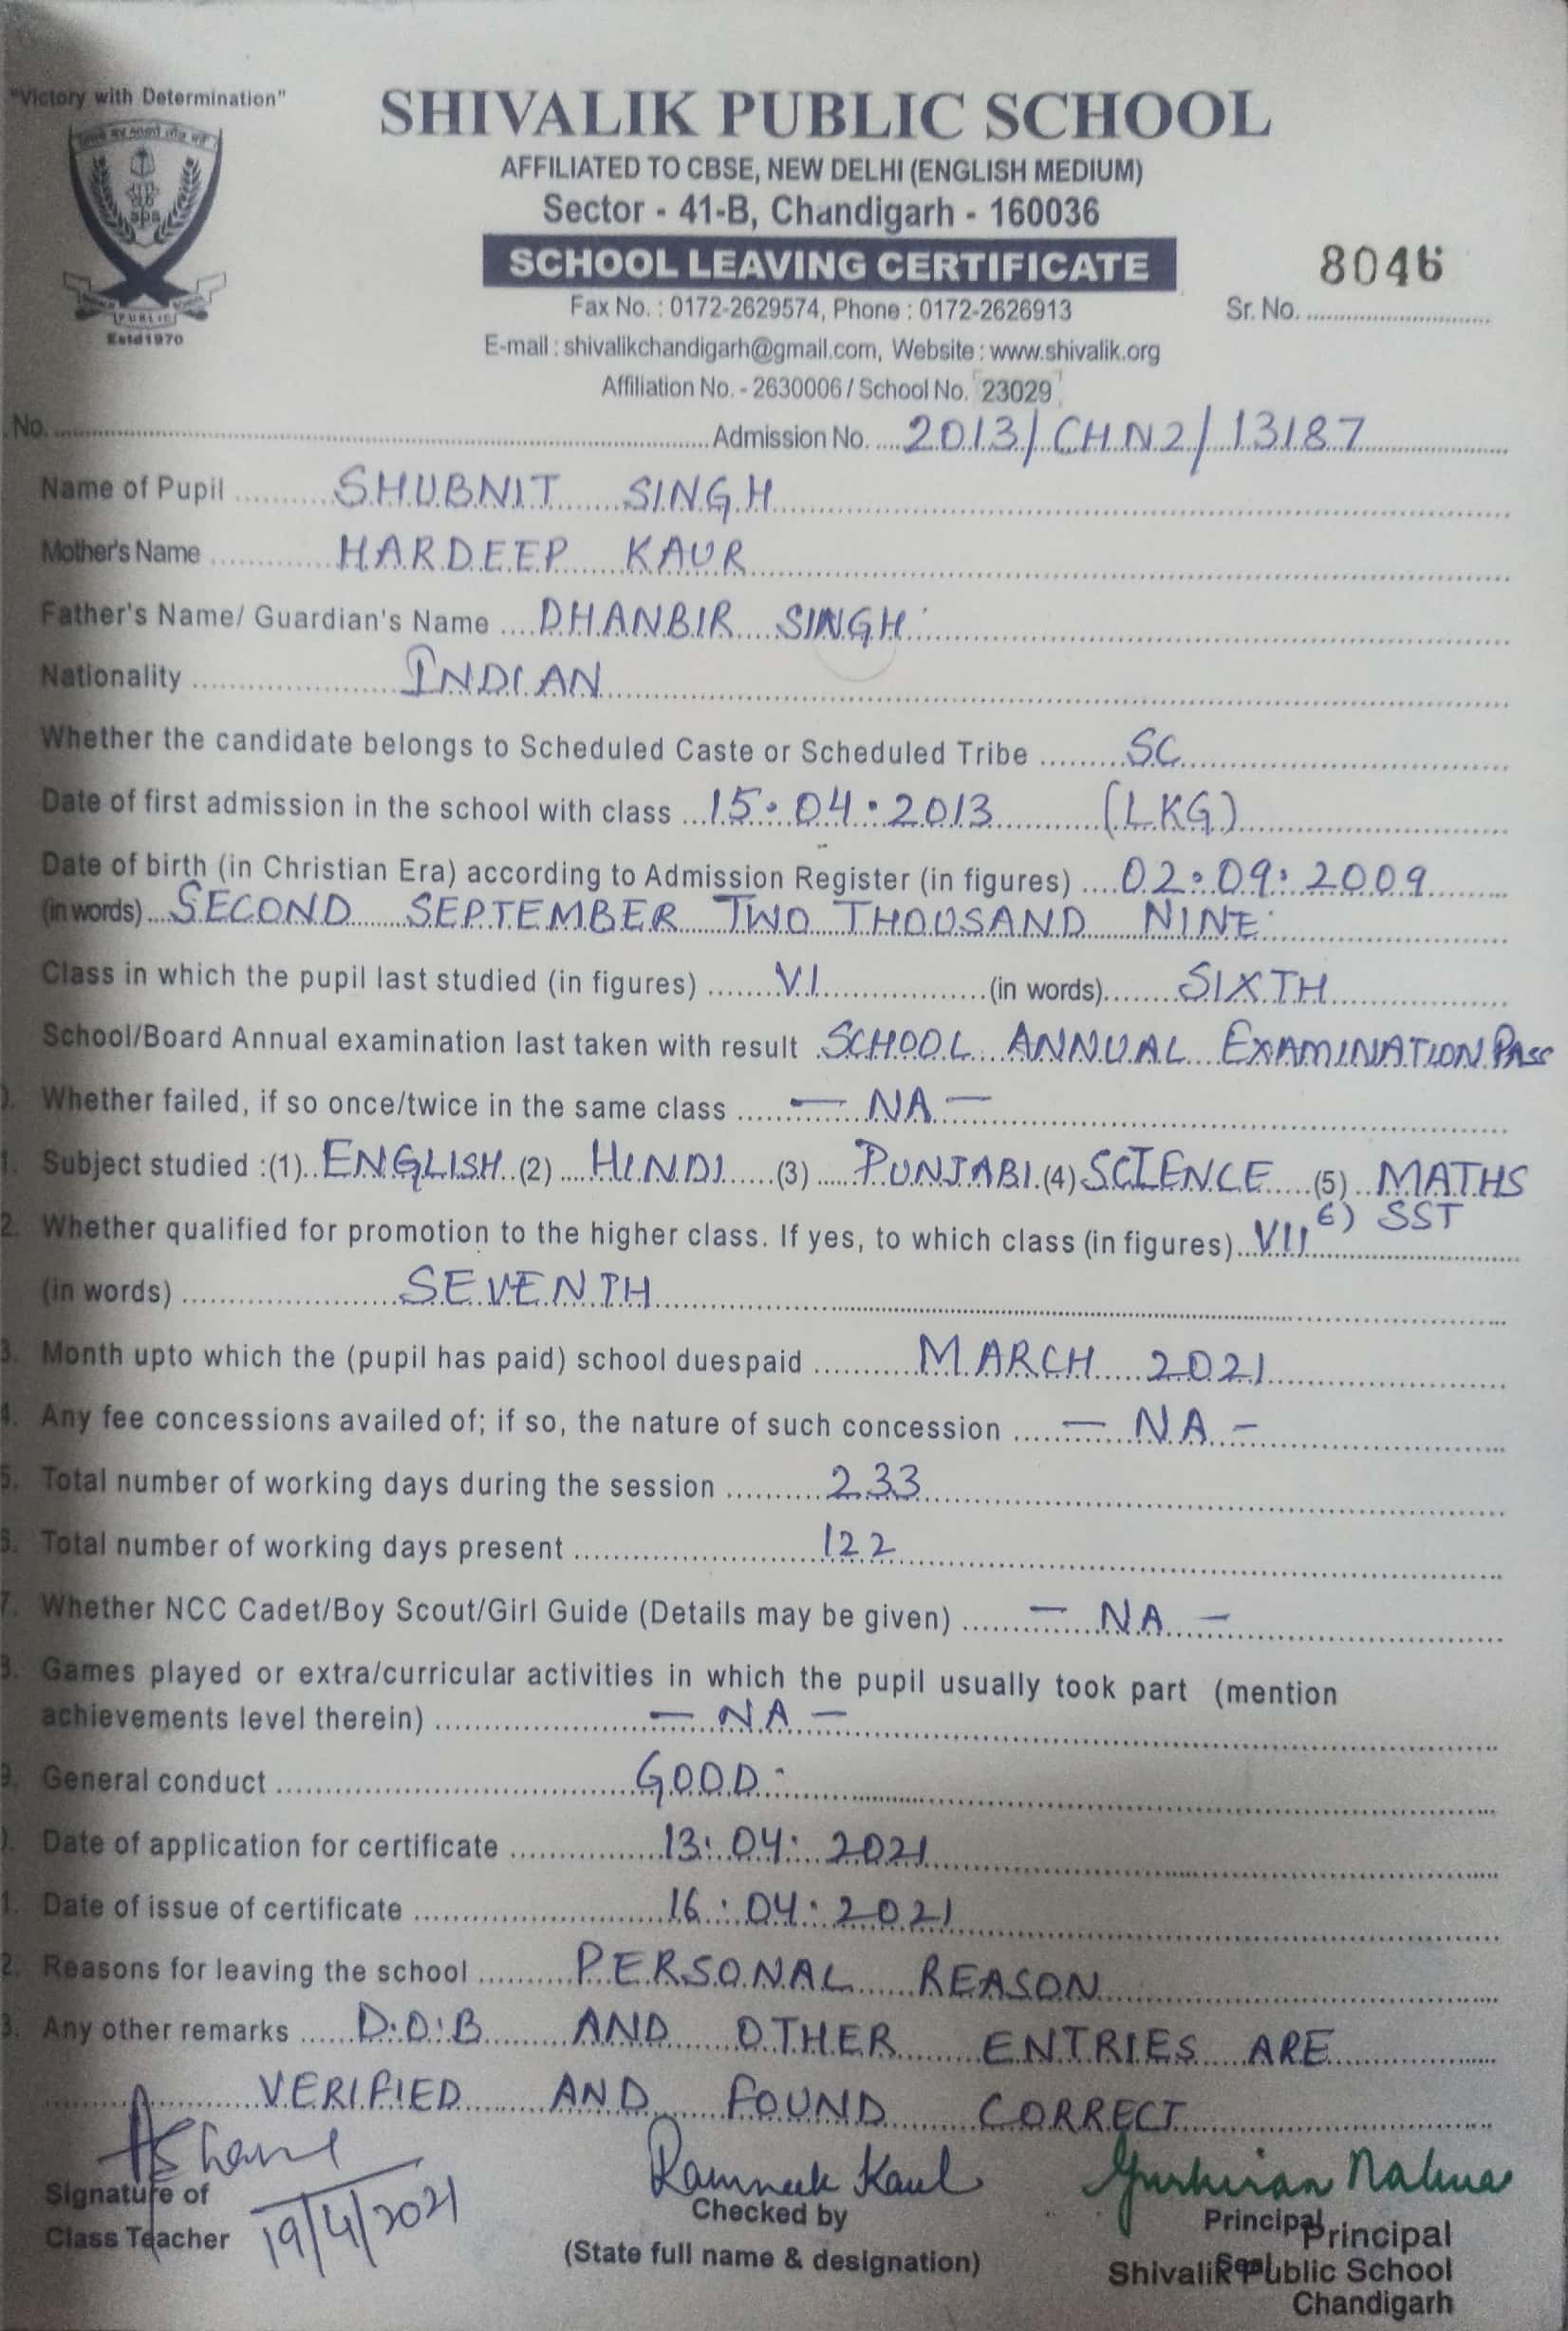 "Victory with Determination"
SHIVALIK PUBLIC SCHOOL
AFFILIATED TO CBSE, NEW DELHI (ENGLISH MEDIUM)
Sector - 41-B, Chandigarh - 160036
SCHOOL LEAVING CERTIFICATE
8046
Fax No. : 0172-2629574, Phone : 0172-2626913
Sr. No. ..............................
E-mail : shivalikchandigarh@gmail.com, Website : www.shivalik.org
Affiliation No. - 2630006 / School No. 23029
sps
PUBLIC
Estd 1970
.No. .............................. Admission No. .... 2013/CHN2/13187
Name of Pupil .......... SHUBNIT SINGH
Mother's Name .......... HARDEEP KAUR
Father's Name/ Guardian's Name .... DHANBIR SINGH
Nationality .......... INDIAN
Whether the candidate belongs to Scheduled Caste or Scheduled Tribe ......... SC
Date of first admission in the school with class ... 15.04.2013 (LKG)
Date of birth (in Christian Era) according to Admission Register (in figures) .... 02.09.2009
(in words) ... SECOND SEPTEMBER TWO THOUSAND NINE
Class in which the pupil last studied (in figures) ........ VI .......... (in words) ........ SIXTH
School/Board Annual examination last taken with result SCHOOL ANNUAL EXAMINATION PASS
). Whether failed, if so once/twice in the same class ...... — NA —
1. Subject studied :(1).. ENGLISH (2) .... HINDI ...... (3) ..... PUNJABI (4) SCIENCE ..... (5) .. MATHS
6) SST
2. Whether qualified for promotion to the higher class. If yes, to which class (in figures) ... VII
(in words) .......... SEVENTH
3. Month upto which the (pupil has paid) school duespaid .......... MARCH 2021
4. Any fee concessions availed of; if so, the nature of such concession ...... — NA —
5. Total number of working days during the session .......... 233
6. Total number of working days present .......... 122
7. Whether NCC Cadet/Boy Scout/Girl Guide (Details may be given) ...... — NA —
8. Games played or extra/curricular activities in which the pupil usually took part (mention
achievements level therein) .......... — NA —
9. General conduct .......... GOOD
). Date of application for certificate .......... 13.04.2021
1. Date of issue of certificate .......... 16.04.2021
2. Reasons for leaving the school .......... PERSONAL REASON
3. Any other remarks ...... D.O.B AND OTHER ENTRIES ARE
VERIFIED AND FOUND CORRECT
Ramneek Kaul
Gurkiran Nalwa
Signature of
Class Teacher
19/4/2021
Checked by
(State full name & designation)
Principal
Seal
Principal
Shivalik Public School
Chandigarh